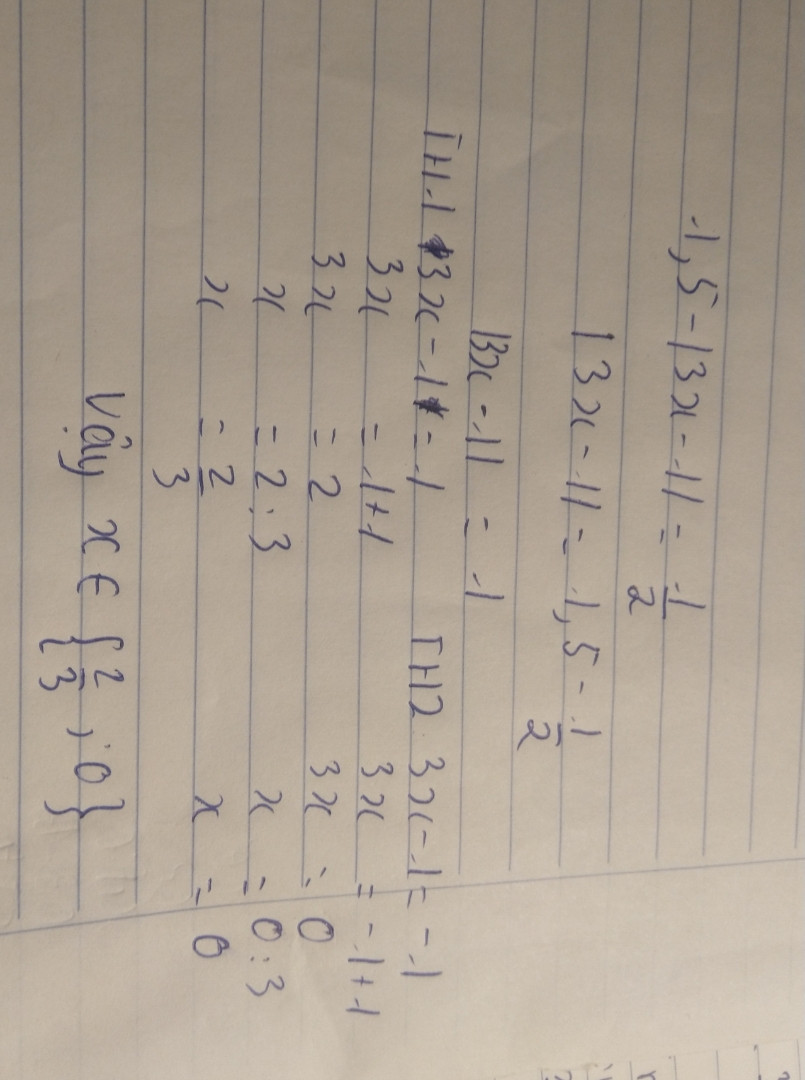 1,5 - |3x - 1| = 1/2
|3x - 1| = 1,5 - 1/2
|3x - 1| = 1
TH1 3x - 1 = 1 TH2 3x - 1 = -1
3x = 1 + 1 3x = -1 + 1
3x = 2 3x = 0
x = 2 : 3 x = 0 : 3
x = 2/3 x = 0
Vậy x ∈ {2/3 ; 0}